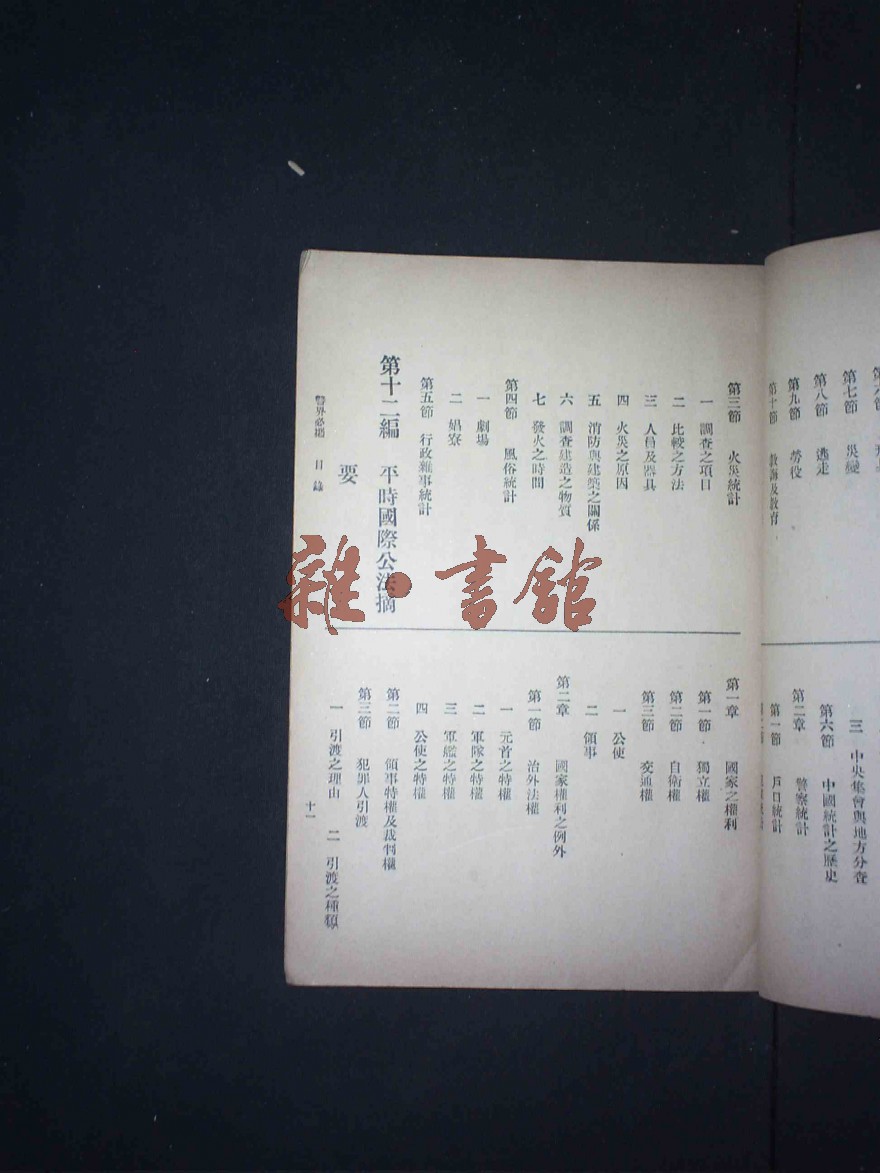 第七節 災變
第八節 逃走
第九節 勞役
第十節 教誨及教育
三 中央集會與地方分查
第六節 中國統計之歷史
第二章 警察統計
第一節 戶口統計
第三節 火災統計
一 調查之項目
二 比較之方法
三 人員及器具
四 火災之原因
五 消防與建築之關係
六 調查建造之物質
七 發火之時間
第四節 風俗統計
一 劇場
二 娼寮
第五節 行政雜事統計
第十二編 平時國際公法摘
要
第一章 國家之權利
第一節 獨立權
第二節 自衛權
第三節 交通權
一 公使
二 領事
第二章 國家權利之例外
第一節 治外法權
一 元首之特權
二 軍隊之特權
三 軍艦之特權
四 公使之特權
第二節 領事特權及裁判權
第三節 犯罪人引渡
一 引渡之理由 二 引渡之種類
警界必攜 目錄
十一
雜·書館